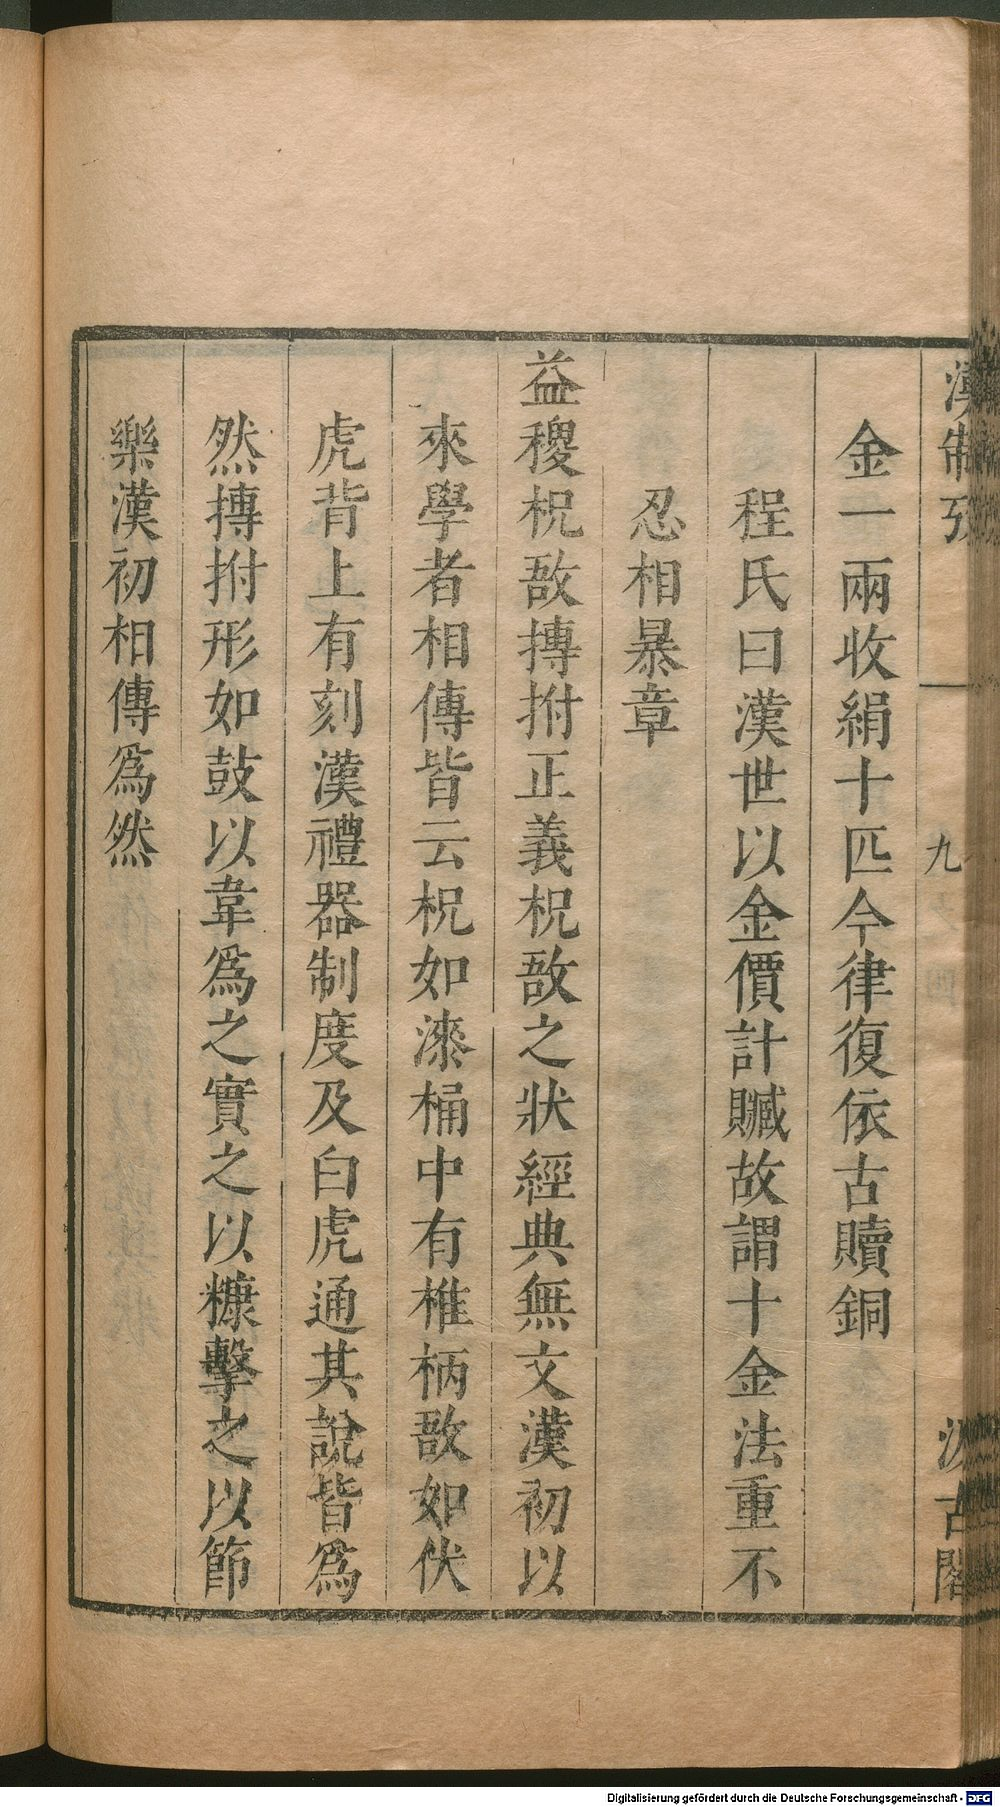 漢制攷
九
汲古閣
金一兩收絹十匹今律復依古贖銅
程氏曰漢世以金價計贓故謂十金法重不
忍相暴章
益稷柷敔搏拊正義柷敔之狀經典無文漢初以
來學者相傳皆云柷如漆桶中有椎柄敔如伏
虎背上有刻漢禮器制度及白虎通其說皆爲
然搏拊形如鼓以韋爲之實之以糠擊之以節
樂漢初相傳爲然
Digitalisierung gefördert durch die Deutsche Forschungsgemeinschaft - DFG